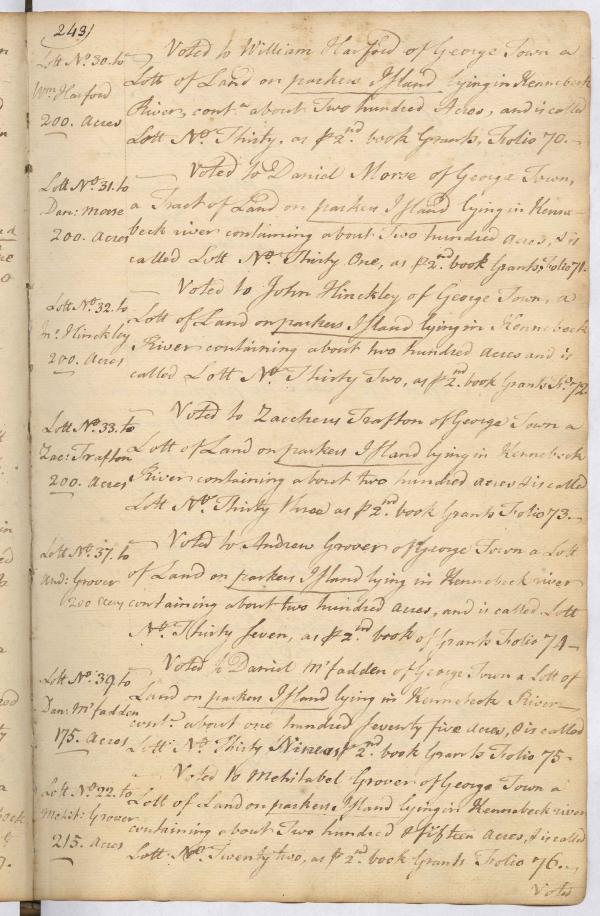 243)
Lott No. 30. to
Wm Harford
200. Acres
Voted to William Harford of George Town a
Lott of Land on parkers Island lying in Kennebeck
River, conta. about Two hundred Acres, and is called
Lott No. Thirty. as ⅌ 2nd. book Grants, Folio 70.
Lott No. 31. to
Dan: Morse
200. Acres
Voted to Daniel Morse of George Town,
a Tract of Land on parkers Island lying in Kenne-
beck river containing about Two hundred Acres, & is
called Lott No. Thirty One, as ⅌ 2nd. book Grants, Folio 71.
Lott No. 32. to
Jn: Hinckley
200. Acres
Voted to John Hinckley of George Town, a
Lott of Land on parkers Island lying in Kennebeck
River containing about two hundred Acres and is
called Lott No. Thirty Two, as ⅌ 2nd. book Grants Fo. 72
Lott No. 33. to
Zac: Trafton
200. Acres
Voted to Zaccheus Trafton of George Town a
Lott of Land on parkers Island lying in Kennebeck
River containing about two hundred acres & is called
Lott No. Thirty three as ⅌ 2nd. book Grants Folio 73.
Lott No. 37. to
And: Grover
200 Acres
Voted to Andrew Grover of George Town a Lott
of Land on parkers Island lying in Kennebeck river
containing about two hundred acres, and is called Lott
No. Thirty Seven, as ⅌ 2nd book of Grants Folio 74
Lott No. 39. to
Dan: Mcfadden
175. Acres
Voted to Daniel Mcfadden of George Town a Lott of
Land on parkers Island lying in Kennebeck River
contg. about one hundred seventy five acres, & is called
Lott No. Thirty Nine as ⅌ 2nd. book Grants Folio 75
Lott No. 22. to
Mehit: Grover
215. Acres
Voted to Mehitabel Grover of George Town a
Lott of Land on parkers Island lying in Kennebeck river
containing about Two hundred & fifteen acres, & is called
Lott No. Twenty two, as ⅌ 2nd. book Grants Folio 76.
Voted